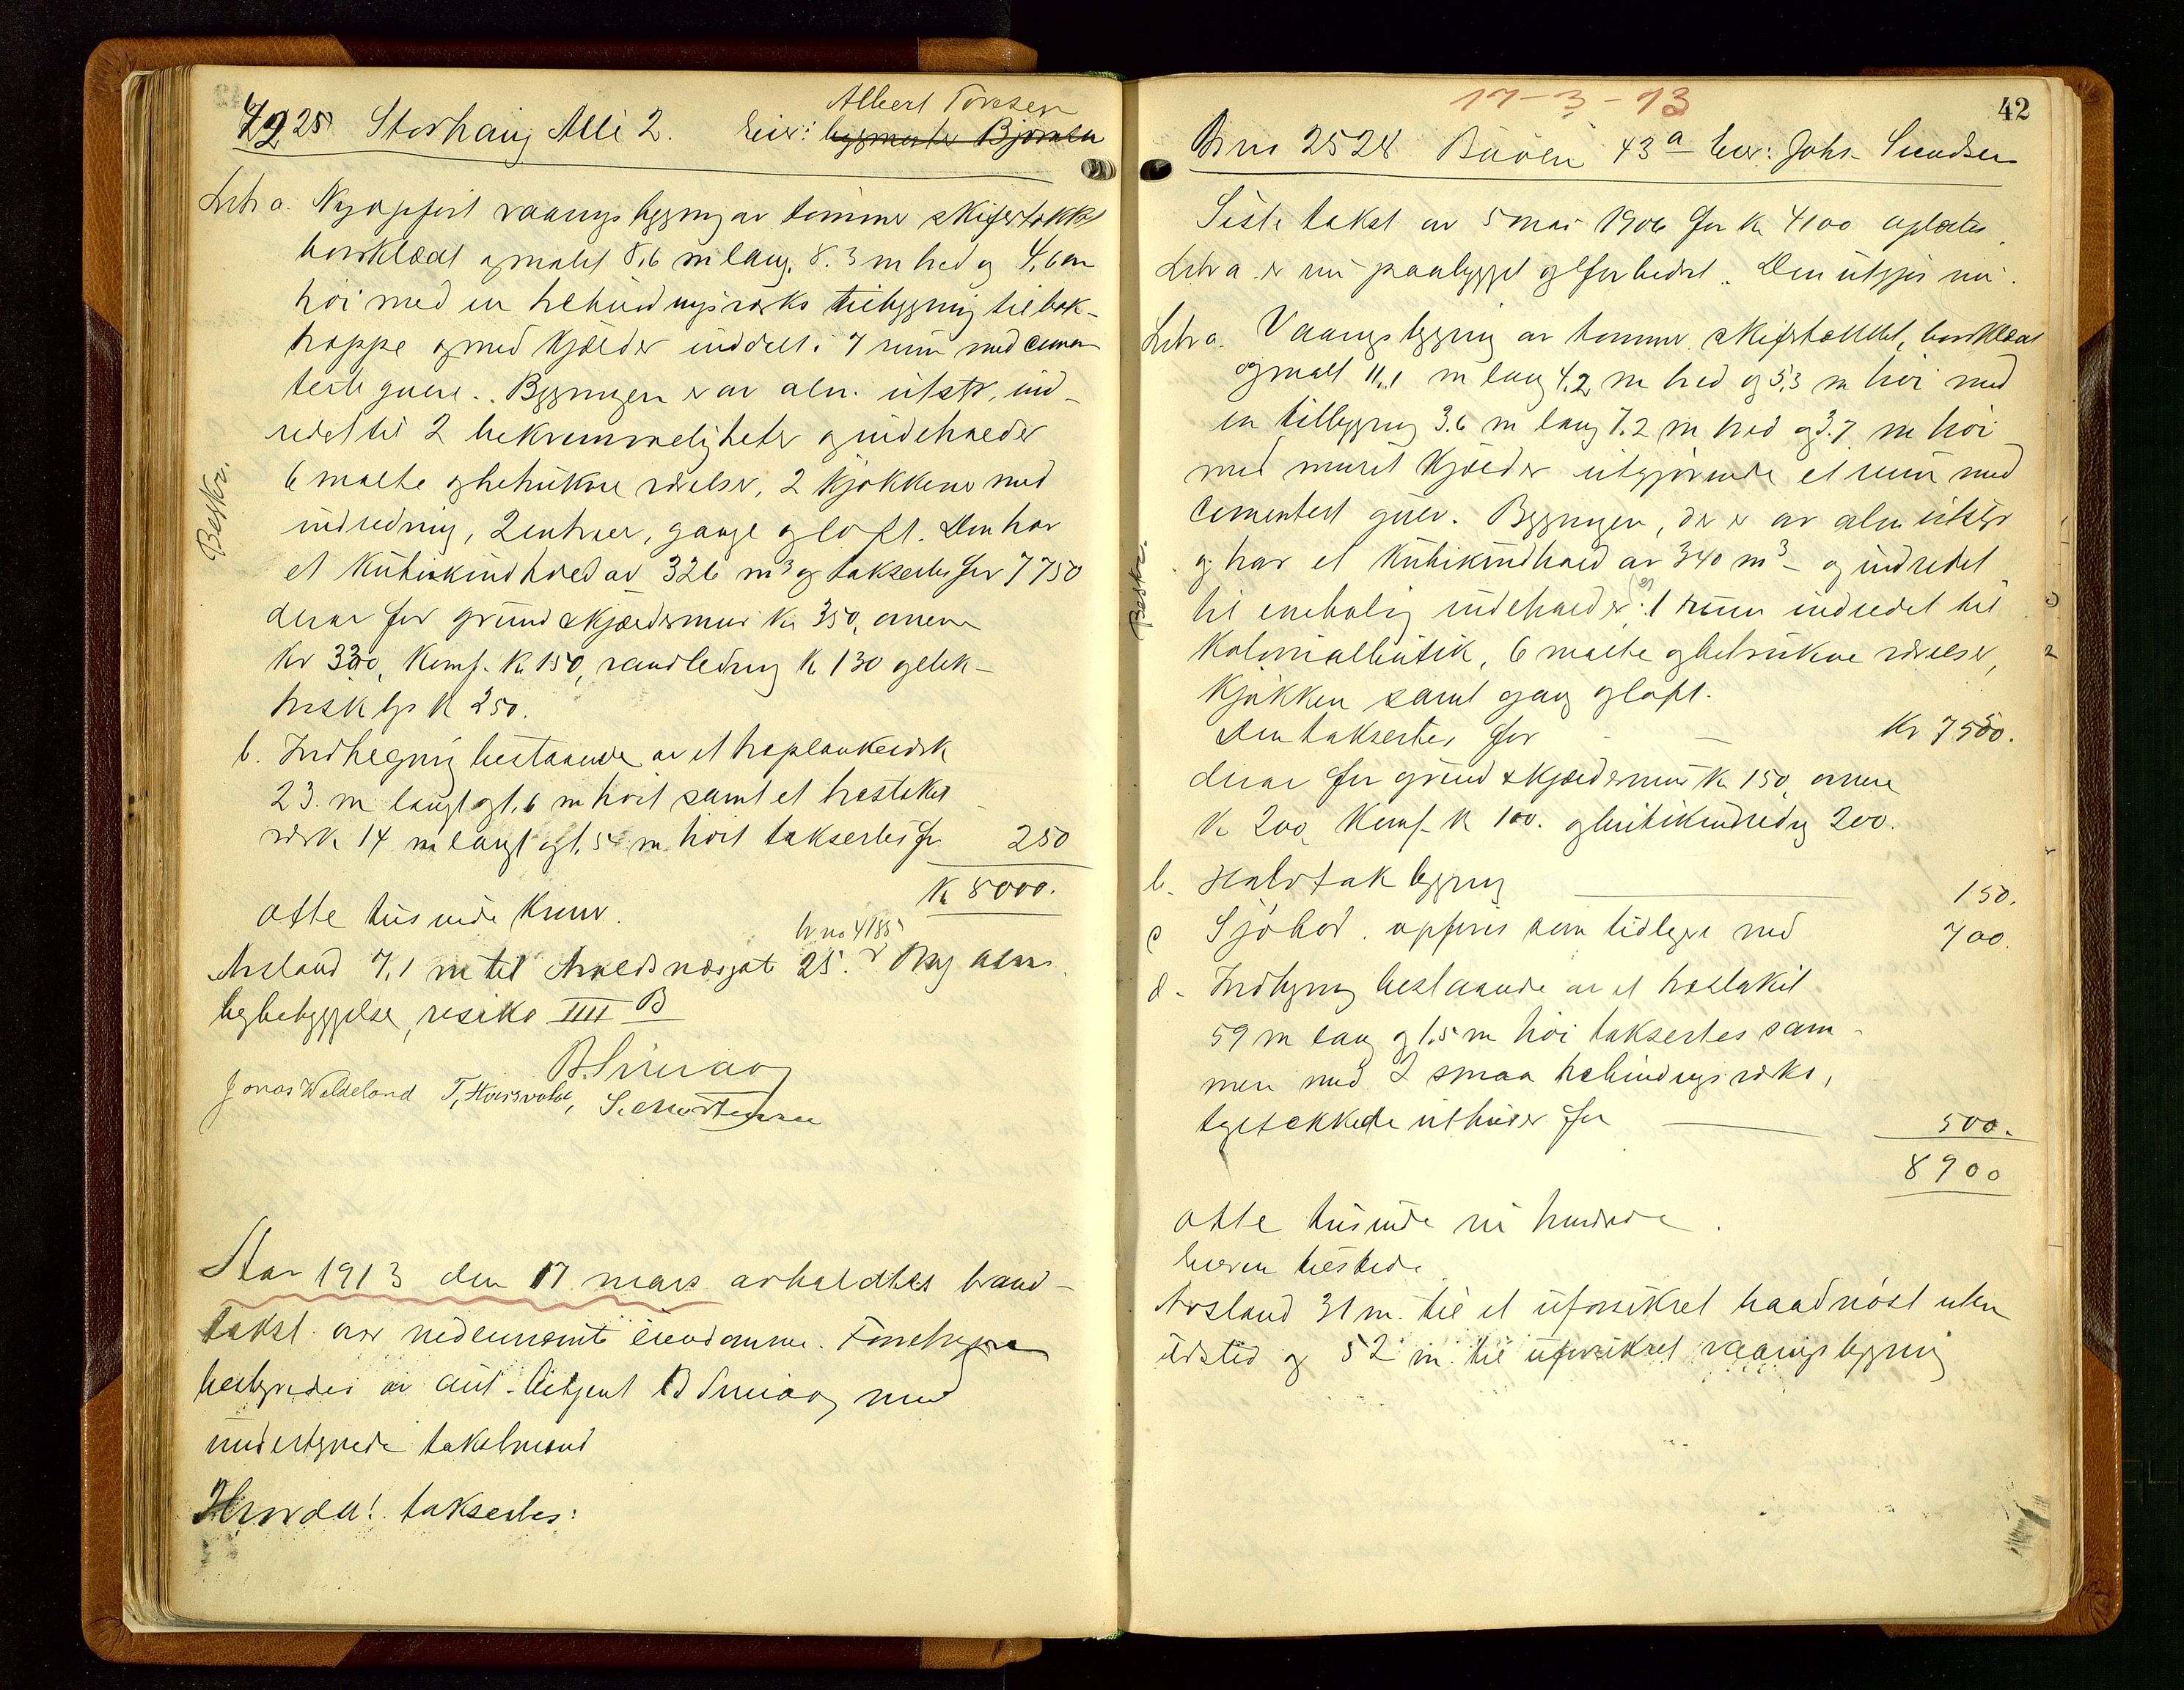 Albert Torsen
4225 Storhaug Alle 2. Eier: bygmester Bjørnsen
Litr a. Nyopført vaaningsbygning av tømmer skifertækket
bordklædt og malt 8,6 m lang, 8.3 m bred og 4,6 m
høi med en trebindingsværks tilbygning til bak-
trappe og med kjælder inddelt i 7 rum med cemen-
terte gulve. Bygningen er av alm. utstyr, ind-
redet til 2 bekvemmeligheter og indeholder
6 malte og betrukne værelser, 2 kjøkkener med
indredning, 2 entreer, gange og loft. Den har
et kubikindhold av 326 m³ og taksertes for 7750
derav for grund & kjældermur kr 350, ovnene
kr 330, komf. kr 150, vandledning kr 130 og elek-
trisk lys kr 250.
Beskr.
b. Indhegning bestaaende av et træplankeværk
23 m langt og 1,6 m høit samt et træstaket
værk 14 m langt og 1,5 m høit taksertes for 250
Kr 8000.
otte tusinde kroner.
br no 4185
Avstand 7,1 m til Avaldsnesgate 25. Ny alm.
bybebyggelse, risiko IIII B
B. Smaaog
Jonas Weldeland T. Hoisvold, S. Mortensen
Aar 1913 den 17 mars avholdtes brand-
takst over nedennevnte eiendomme. Forretningen
bestyredes av aut. betjent B Smaaog med
undertegnede takstmænd
Hvorda! taksertes:
17-3-13
42
Br no 2528 Buøen 43a Eier: Johs. Svendsen
Siste takst av 5 mai 1906 for kr 4100 opløstes.
Litr a er nu paabygget og forbedret. Den utgjør nu:
Litr a. Vaaningsbygning av tømmer skifertækket, bordklædt
og malt 11,1 m lang 4,2 m bred og 5,3 m høi med
en tilbygning 3.6 m lang 7.2 m bred og 3.7 m høi
med muret kjælder utgjørende et rum med
cementert gulv. Bygningen, der er av alm utstyr
og har et kubikindhold av 340 m³ – og indredet
til enebolig indeholder: 1 rum indredet til
Kolonialbutik, 6 malte og betrukne værelser,
Kjøkken samt gang og loft.
Beskr.
Den taksertes for – – Kr 7550.
derav for grund & kjældermur kr 150, ovnene
kr 200, komf. kr 100. og butikindredn 200.
b. Halvtak bygning 150.
c Sjøbod. opføres som tidligere med 700.
d. Indhegning bestaaende av et træstakit
59 m lang og 1.5 m høi taksertes sam-
men med 2 smaa trebindingsværks,
teglstækkede uthuser for 500.
8900
otte tusinde ni hundrede.
Eieren tilstede.
Avstand 31 m. til et uforsikret baadnøst uten
ildsted og 52 m. til uforsikret vaaningsbygning